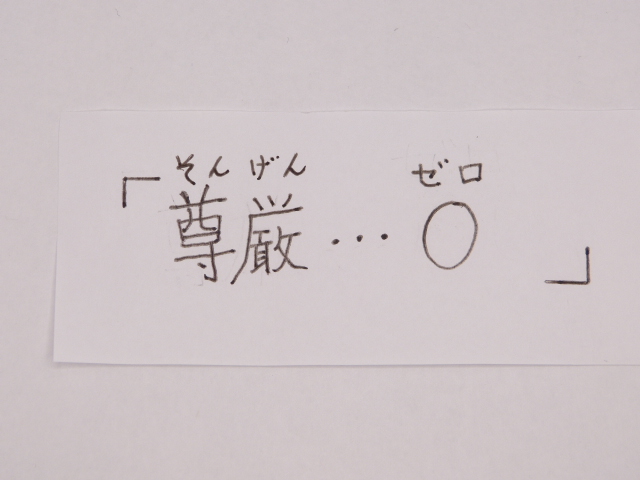 そんげん ゼロ
「尊厳…０」